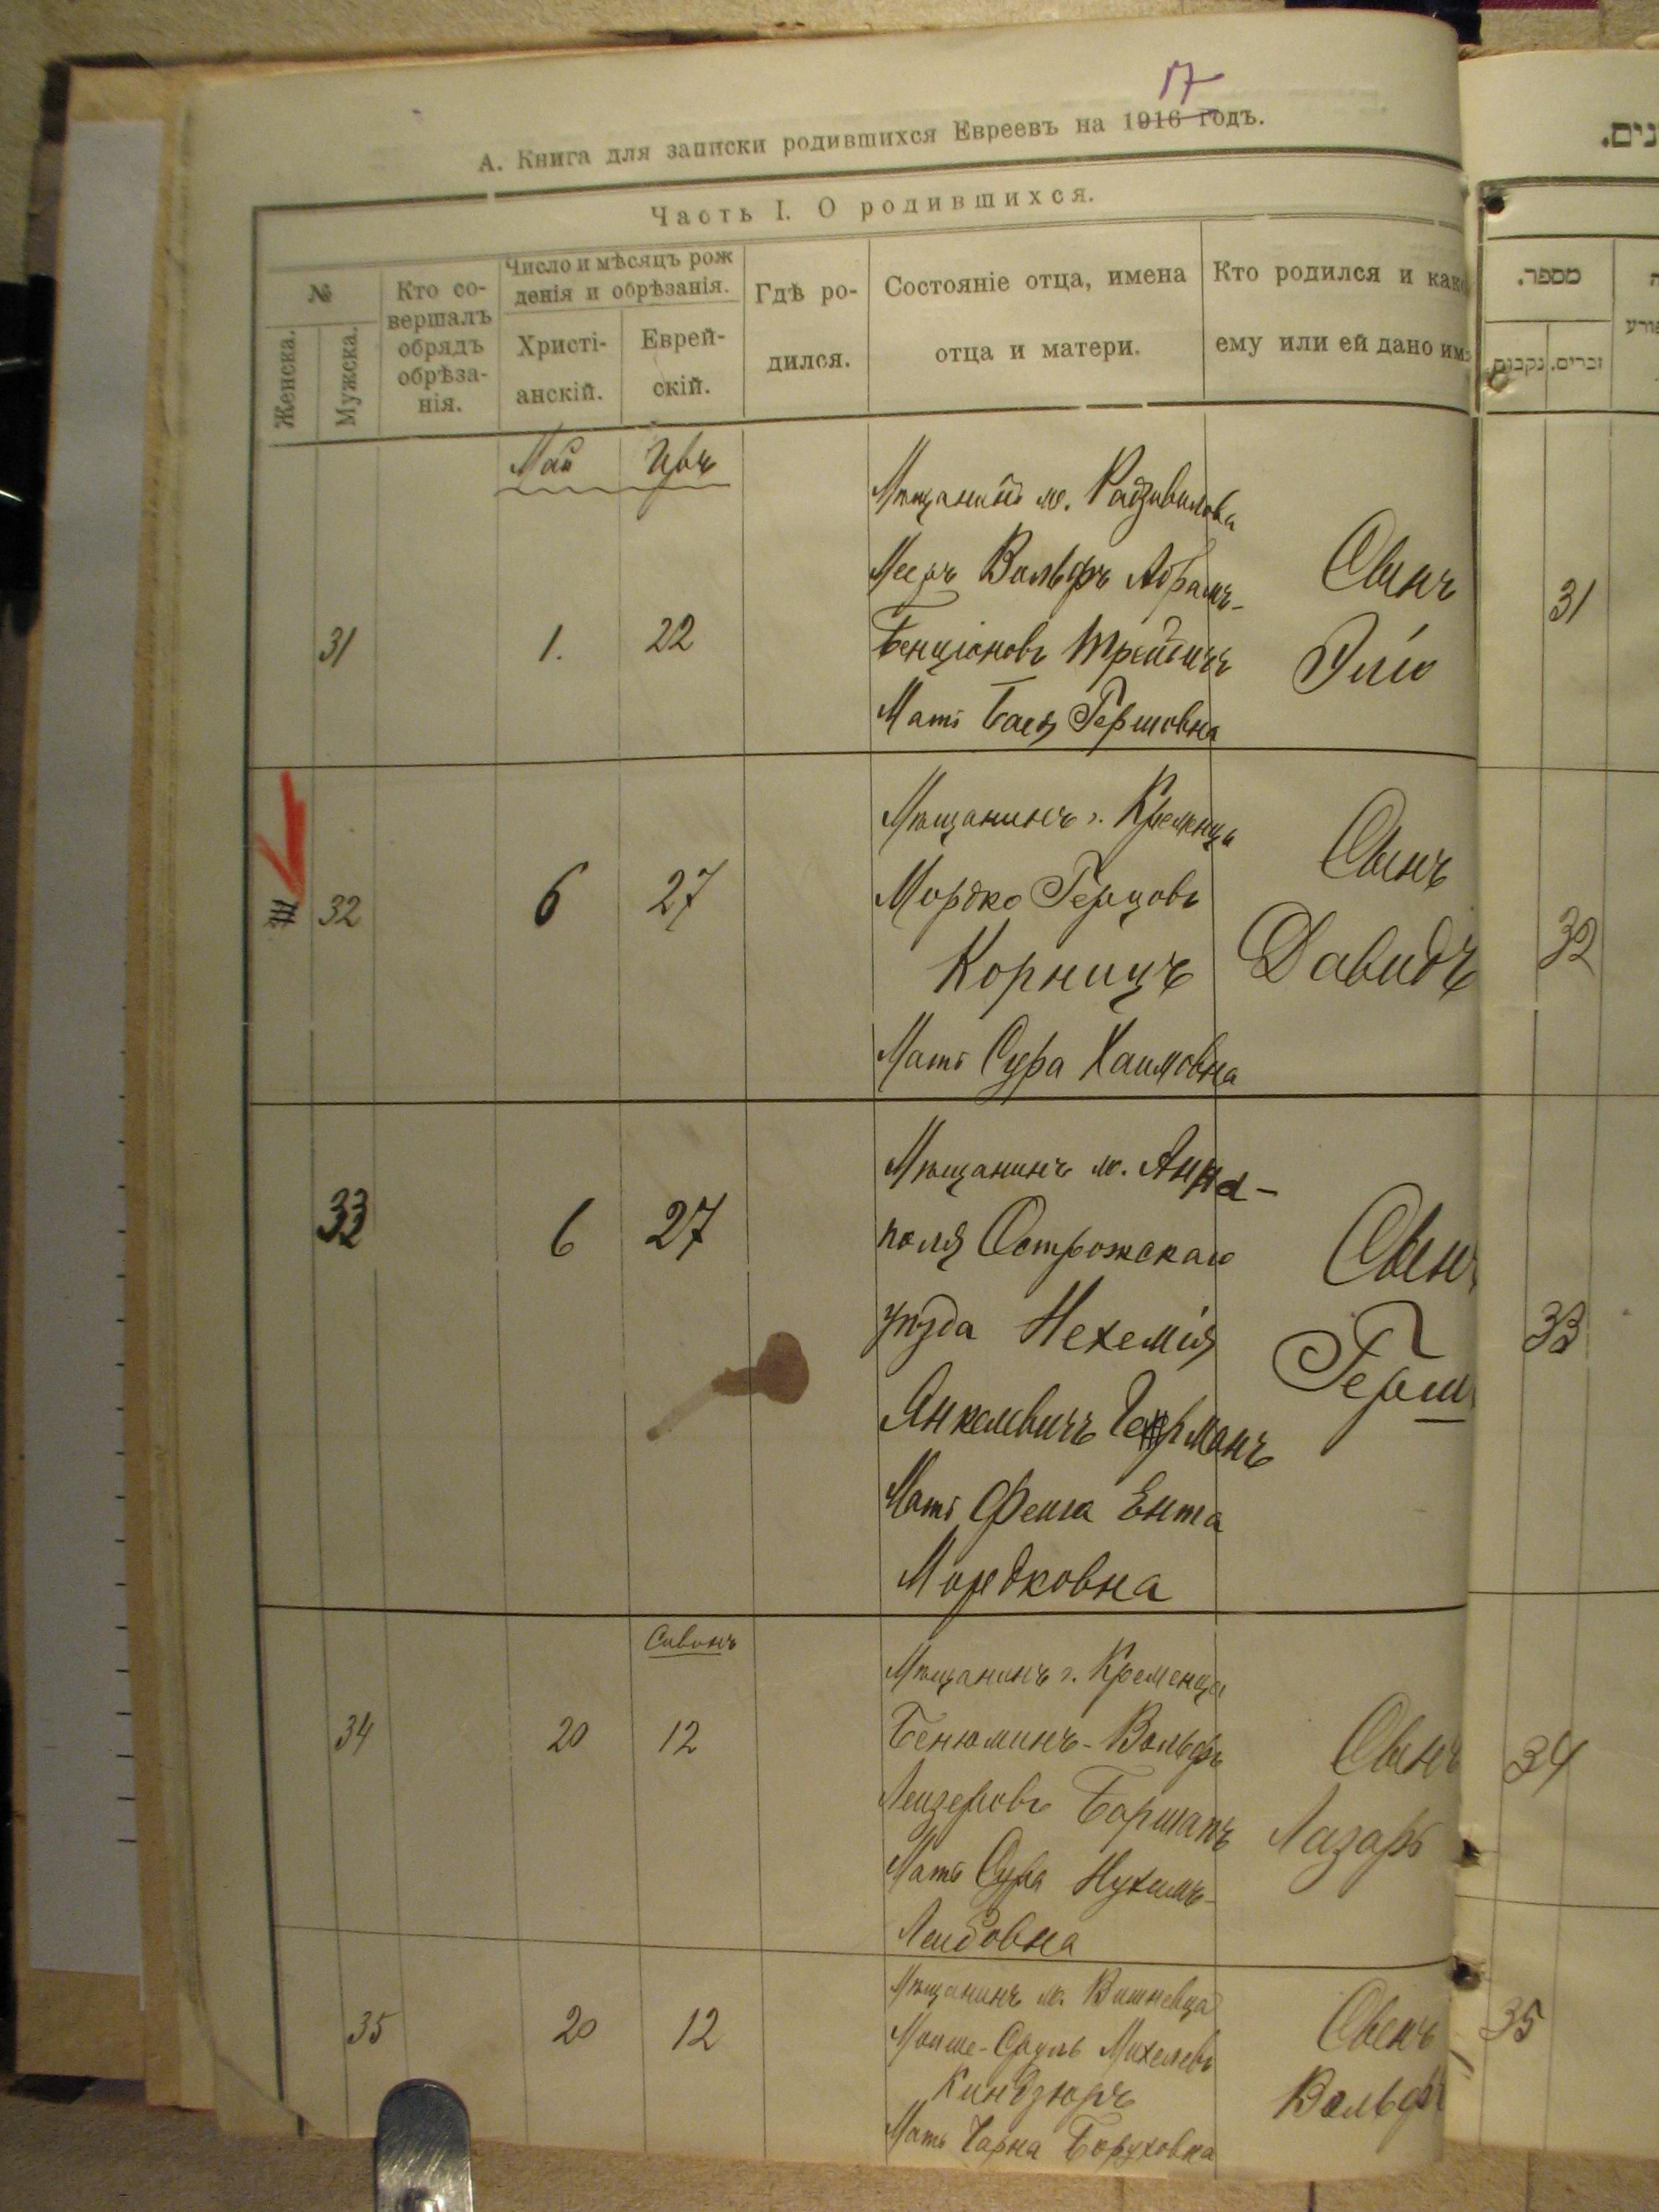 17
А. Книга для записки родившихся Евреевъ на 1916 годъ.
Часть I. О родившихся.
№
Женска.
Мужска.
Кто со-
вершалъ
обрядъ
обрѣза-
нія.
Число и мѣсяцъ рож
денія и обрѣзанія.
Христі-
анскій.
Еврей-
скій.
Гдѣ ро-
дился.
Состояніе отца, имена
отца и матери.
Кто родился и како
ему или ей дано имя
מספר.
זכרים.
נקבות
Май
31
1.
22
Мѣщанинъ м. Радзивилова
Мееръ Вольфъ Абрамъ-
Бенціоновъ
Мать Бася Гершовна
Сынъ
31
32
6
27
Мѣщанинъ г. Кременца
Мордко Герцовъ
Корницъ
Мать Сура Хаимовна
Сынъ
Давидъ
32
33
6
27
Мѣщанинъ м. Анна-
поля Острожскаго
уѣзда Нехемія
Янкелевичъ
Мать Фейга Ента
Мордковна
Сынъ
Герш
33
Сиванъ
34
20
12
Мѣщанинъ г. Кременца
Бенюминъ-Вольфъ
Лейзеровъ
Мать Сура Нухимъ-
Лейбовна
Сынъ
Лазарь
34
35
20
12
Мѣщанинъ м. Вишневца
Мойше-Сруль Михелевъ
Киндзюръ
Мать Чарна Боруховна
Сынъ
Вольфъ
35